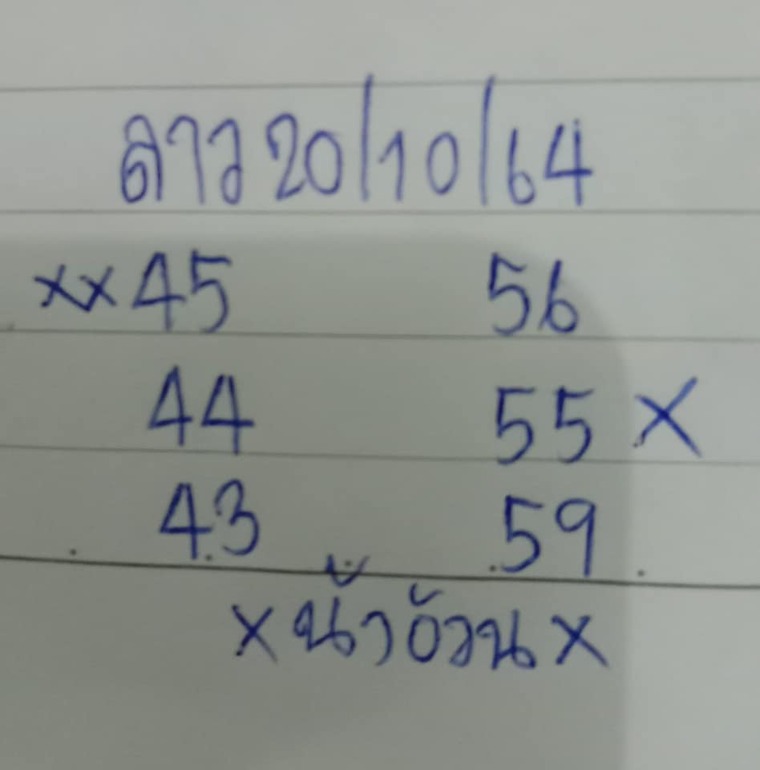 ลาว 20/10/64
xx 45 56
44 55 x
43 59
x น้าอ้วน x